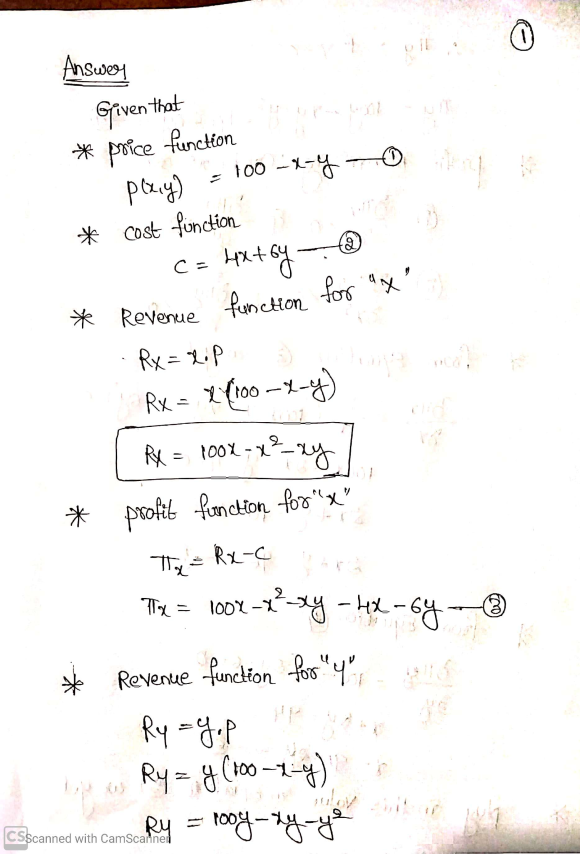 ①
Answer
Given that
* price function
p(x,y) = 100 - x - y — ①
* cost function
C = 4x + 6y — ②
* Revenue function for "x"
Rx = x.P
Rx = x(100 - x - y)
Rx = 100x - x² - xy
* profit function for "x"
πx = Rx - C
πx = 100x - x² - xy - 4x - 6y — ③
* Revenue function for "y"
Ry = y.P
Ry = y(100 - x - y)
Ry = 100y - xy - y²
CS Scanned with CamScanner